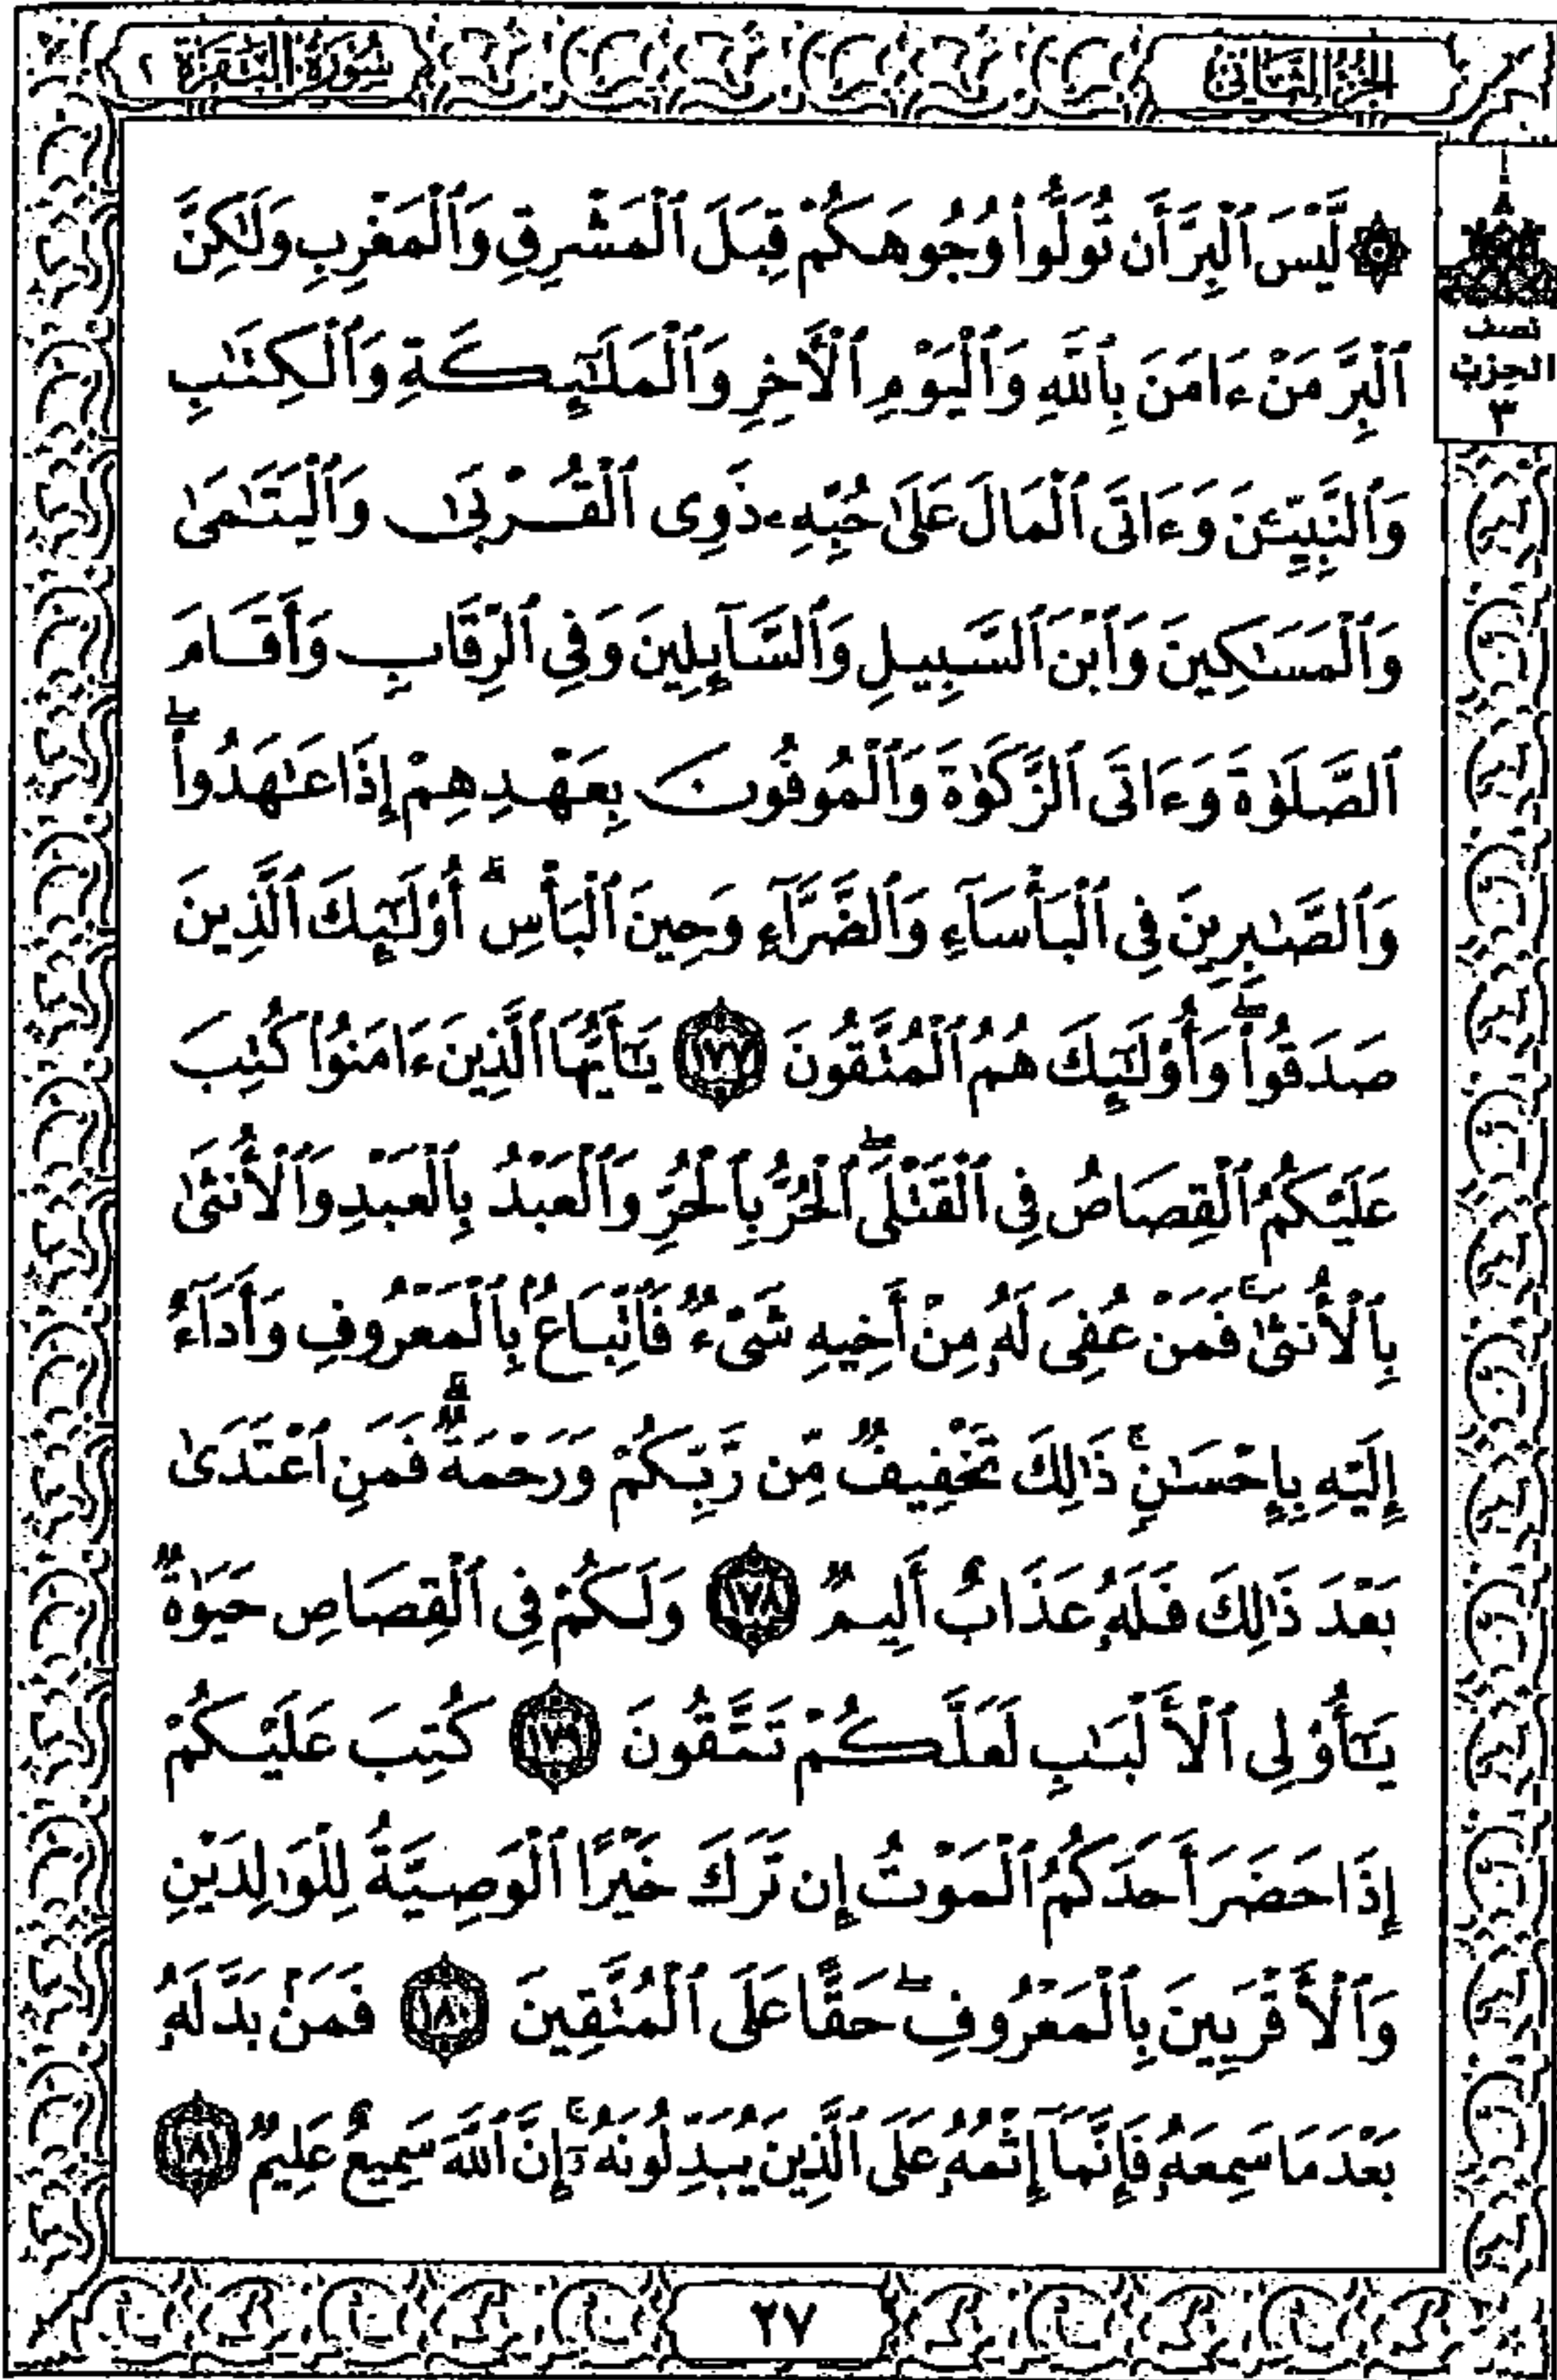 الجزء الثاني
سورة البقرة ٢
نصف
الحزب
٣
۞ لَّيْسَ ٱلْبِرَّ أَن تُوَلُّوا۟ وُجُوهَكُمْ قِبَلَ ٱلْمَشْرِقِ وَٱلْمَغْرِبِ وَلَـٰكِنَّ
ٱلْبِرَّ مَنْ ءَامَنَ بِٱللَّهِ وَٱلْيَوْمِ ٱلْأَخِرِ وَٱلْمَلَـٰٓئِكَةِ وَٱلْكِتَـٰبِ
وَٱلنَّبِيِّـۧنَ وَءَاتَى ٱلْمَالَ عَلَىٰ حُبِّهِۦ ذَوِى ٱلْقُرْبَىٰ وَٱلْيَتَـٰمَىٰ
وَٱلْمَسَـٰكِينَ وَٱبْنَ ٱلسَّبِيلِ وَٱلسَّآئِلِينَ وَفِى ٱلرِّقَابِ وَأَقَامَ
ٱلصَّلَوٰةَ وَءَاتَى ٱلزَّكَوٰةَ وَٱلْمُوفُونَ بِعَهْدِهِمْ إِذَا عَـٰهَدُوا۟ ۖ
وَٱلصَّـٰبِرِينَ فِى ٱلْبَأْسَآءِ وَٱلضَّرَّآءِ وَحِينَ ٱلْبَأْسِ ۗ أُو۟لَـٰٓئِكَ ٱلَّذِينَ
صَدَقُوا۟ ۖ وَأُو۟لَـٰٓئِكَ هُمُ ٱلْمُتَّقُونَ ١٧٧ يَـٰٓأَيُّهَا ٱلَّذِينَ ءَامَنُوا۟ كُتِبَ
عَلَيْكُمُ ٱلْقِصَاصُ فِى ٱلْقَتْلَى ۖ ٱلْحُرُّ بِٱلْحُرِّ وَٱلْعَبْدُ بِٱلْعَبْدِ وَٱلْأُنثَىٰ
بِٱلْأُنثَىٰ ۚ فَمَنْ عُفِىَ لَهُۥ مِنْ أَخِيهِ شَىْءٌ فَٱتِّبَاعٌۢ بِٱلْمَعْرُوفِ وَأَدَآءٌ
إِلَيْهِ بِإِحْسَـٰنٍ ۗ ذَٰلِكَ تَخْفِيفٌ مِّن رَّبِّكُمْ وَرَحْمَةٌ ۗ فَمَنِ ٱعْتَدَىٰ
بَعْدَ ذَٰلِكَ فَلَهُۥ عَذَابٌ أَلِيمٌ ١٧٨ وَلَكُمْ فِى ٱلْقِصَاصِ حَيَوٰةٌ
يَـٰٓأُو۟لِى ٱلْأَلْبَـٰبِ لَعَلَّكُمْ تَتَّقُونَ ١٧٩ كُتِبَ عَلَيْكُمْ
إِذَا حَضَرَ أَحَدَكُمُ ٱلْمَوْتُ إِن تَرَكَ خَيْرًا ٱلْوَصِيَّةُ لِلْوَٰلِدَيْنِ
وَٱلْأَقْرَبِينَ بِٱلْمَعْرُوفِ ۖ حَقًّا عَلَى ٱلْمُتَّقِينَ ١٨٠ فَمَنۢ بَدَّلَهُۥ
بَعْدَ مَا سَمِعَهُۥ فَإِنَّمَآ إِثْمُهُۥ عَلَى ٱلَّذِينَ يُبَدِّلُونَهُۥٓ ۚ إِنَّ ٱللَّهَ سَمِيعٌ عَلِيمٌ ١٨١
٢٧